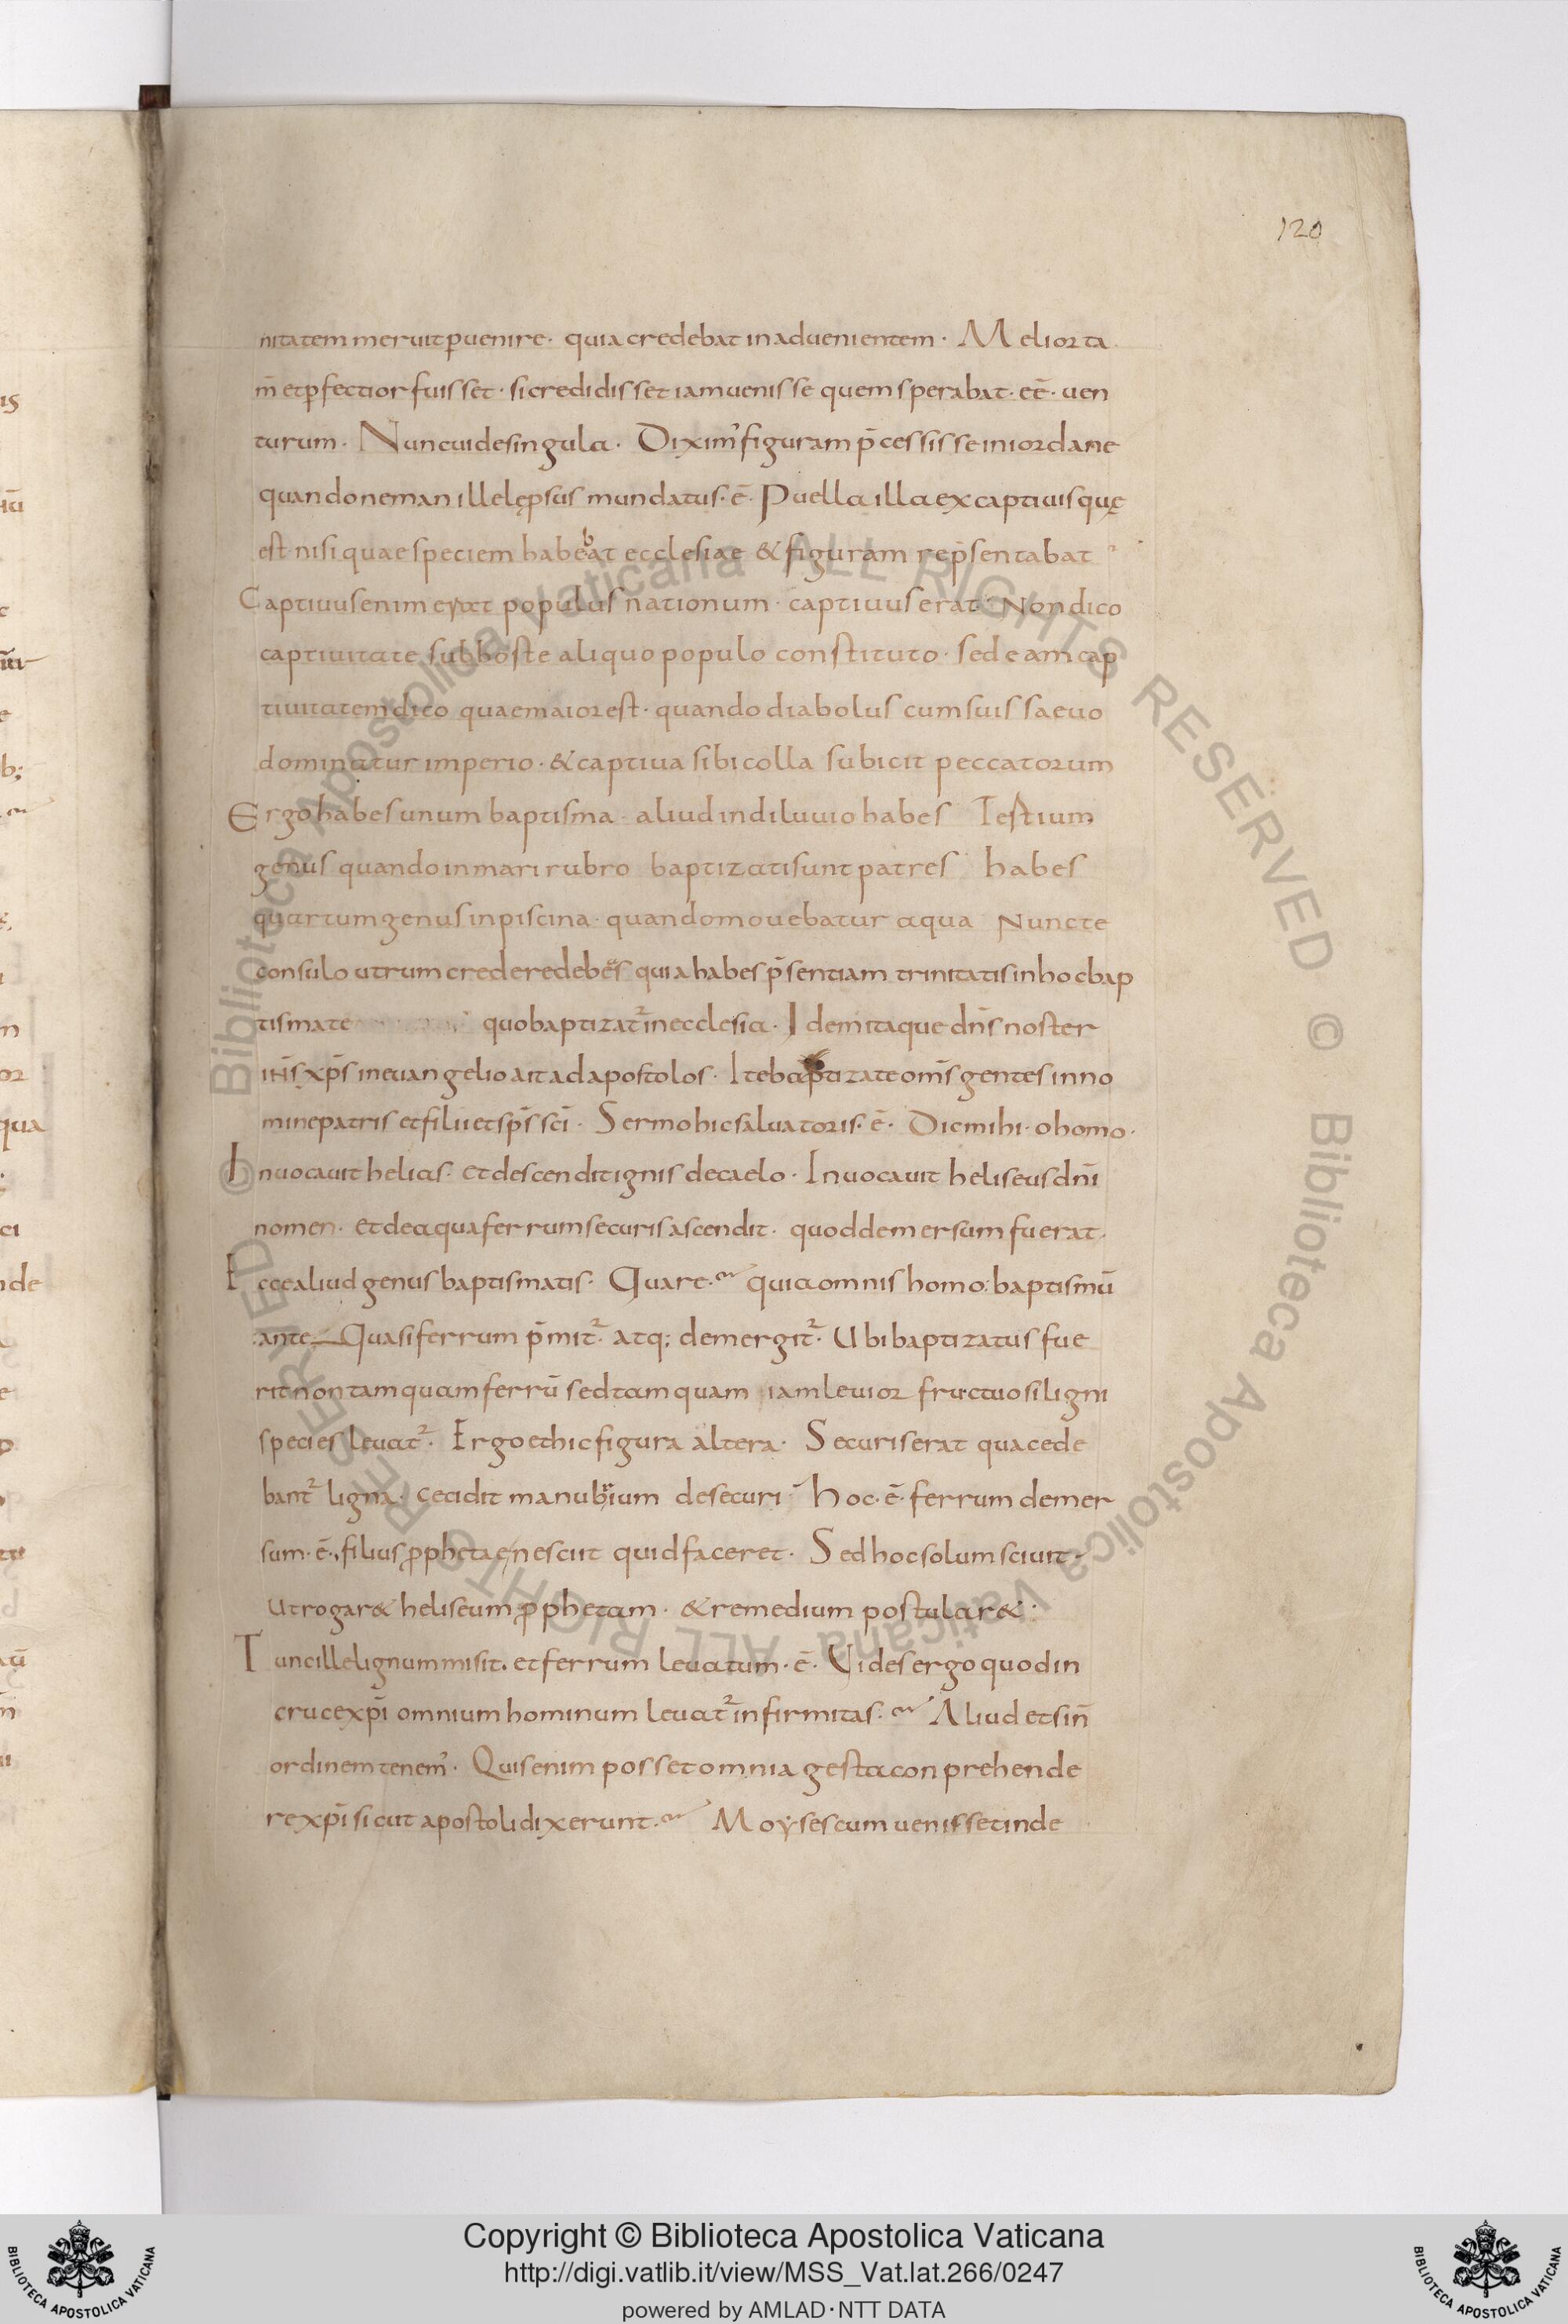 120
nitatem meruit ꝑuenire· quia credebat in aduenientem· Melior ta
m̄ et ꝑfectior fuisset· si credidisset iam uenisse quem sperabat· eē· uen
turum· Nunc uide singula· Diximꝰ figuram p̄cessisse in iordane
quando neman ille lęprsus mundatus· ē· Puella illa ex captiuis quę
est nisi quae speciem habebat ecclesiae & figuram rep̄sentabat
Captiuus enim erat populus nationum· captiuus erat· Non dico
captiuitate sub hoste aliquo populo constituto· sed eam cap
tiuitatem dico quae maior est· quando diabolus cum suis saeuo
dominatur imperio· & captiua sibi colla subicit peccatorum
Ergo habes unum baptisma· aliud in diluuio habes Testium
genus quando in mari rubro baptizati sunt patres habes
quartum genus in piscina· quando mouebatur aqua Nunc te
consulo utrum credere debes quia habes p̄sentiam trinitatis in hoc bap
tismate quo baptizat᷑ in ecclesia· Idem itaque dn̄s noster
ih̄s xp̄s in euangelio ait ad apostolos· Ite baptizate om̄s gentes in no
mine patris et filii et sp̄s sc̄i· Sermo hic saluatoris· ē· Dic mihi· o homo·
Inuocauit helias· et descendit ignis de caelo· Inuocauit heliseus dn̄i
nomen· et de aqua ferrum securis ascendit· quod demersum fuerat·
Ecce aliud genus baptismatis· Quare· quia omnis homo: baptismū
:ante Quasi ferrum p̄mit᷑· atq; demergit᷑· Ubi baptizatus fue
rit non tam quam ferrū sed tam quam iam leuior fructuosi ligni
species leuat᷑· Ergo et hic figura altera· Securis erat qua cede
bant᷑ ligna· cecidit manubrium de securi· hoc· ē· ferrum demer
sum· ē· filius ꝓphetae nesciit quid faceret· Sed hoc solum sciuit·
ut rogar& heliseum ꝓphetam· & remedium postular&·
Tunc ille lignum misit· et ferrum leuatum· ē· Uides ergo quod in
cruce xp̄i omnium hominum leuat᷑ infirmitas· Aliud et sin̄
ordinem tenemꝰ· Quis enim posset omnia gesta conprehende
re xp̄i sicut apostoli dixerunt· Moyses cum uenisset inde
Copyright © Biblioteca Apostolica Vaticana
http://digi.vatlib.it/view/MSS_Vat.lat.266/0247
powered by AMLAD·NTT DATA
BIBLIOTECA APOSTOLICA VATICANA
BIBLIOTECA APOSTOLICA VATICANA
© Biblioteca Apostolica Vaticana ALL RIGHTS RESERVED © Biblioteca Apostolica Vaticana ALL RIGHTS RESERVED